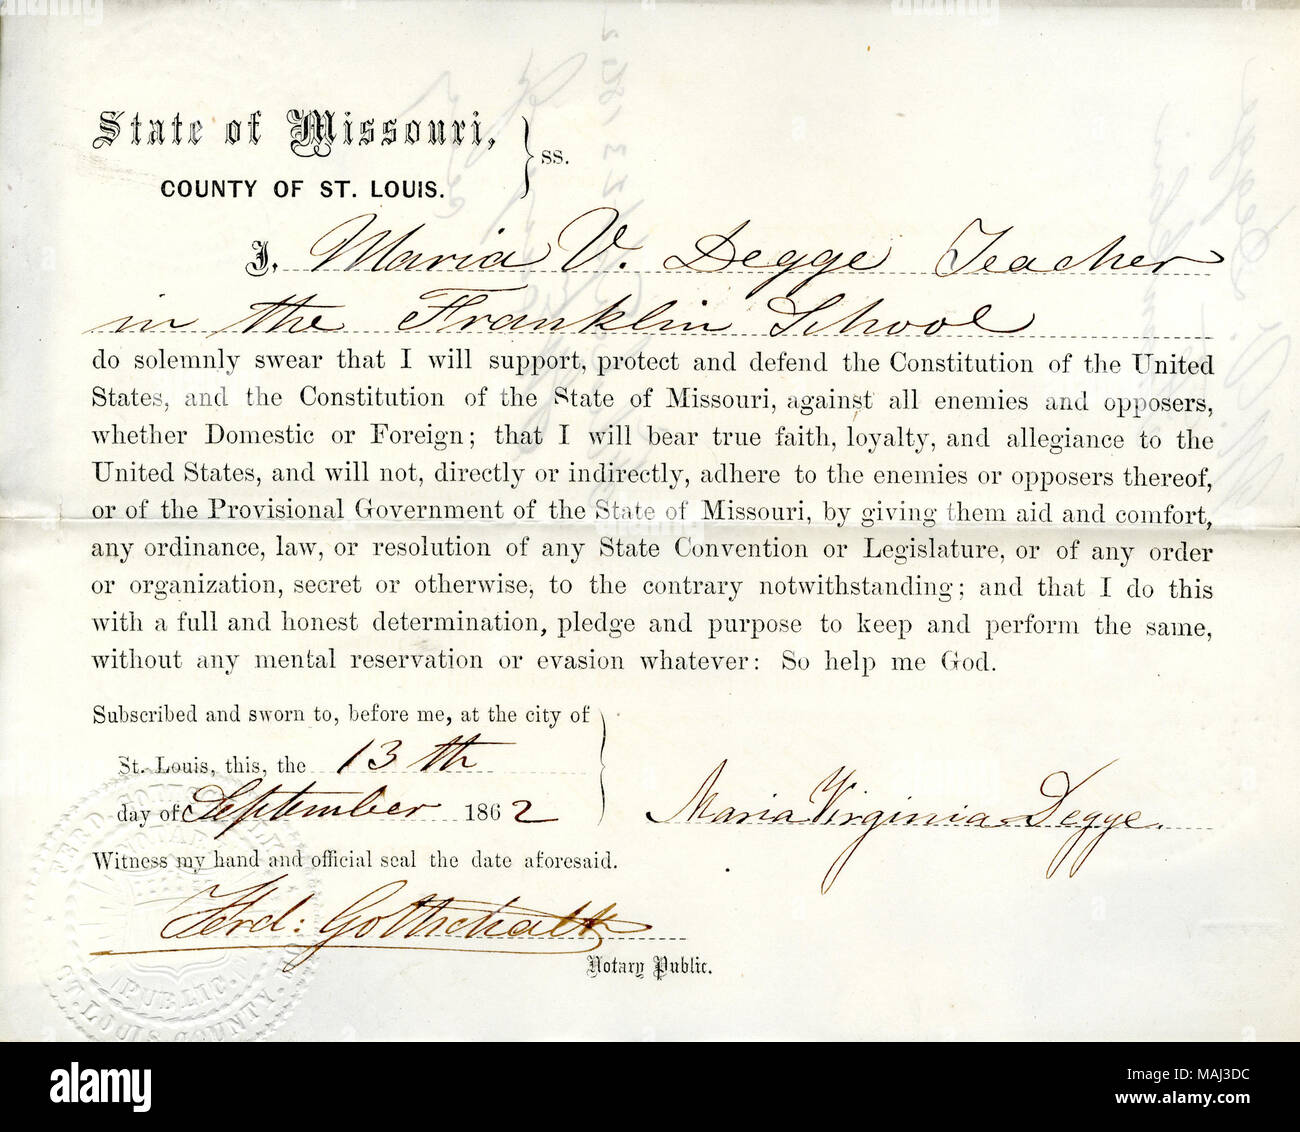 State of Missouri, } ss.
COUNTY OF ST. LOUIS.
I, Maria V. Degge Teacher
in the Franklin School
do solemnly swear that I will support, protect and defend the Constitution of the United
States, and the Constitution of the State of Missouri, against all enemies and opposers,
whether Domestic or Foreign; that I will bear true faith, loyalty, and allegiance to the
United States, and will not, directly or indirectly, adhere to the enemies or opposers thereof,
or of the Provisional Government of the State of Missouri, by giving them aid and comfort,
any ordinance, law, or resolution of any State Convention or Legislature, or of any order
or organization, secret or otherwise, to the contrary notwithstanding; and that I do this
with a full and honest determination, pledge and purpose to keep and perform the same,
without any mental reservation or evasion whatever: So help me God.
Subscribed and sworn to, before me, at the city of
St. Louis, this, the 13th
day of September 1862
Maria Virginia Degge.
Witness my hand and official seal the date aforesaid.
Ferd: Gottschalk
Notary Public.
FERD. GOTTSCHALK
NOTARY
PUBLIC.
ST. LOUIS COUNTY. MO
alamy
alamy
Image ID: MAJ3DC
www.alamy.com